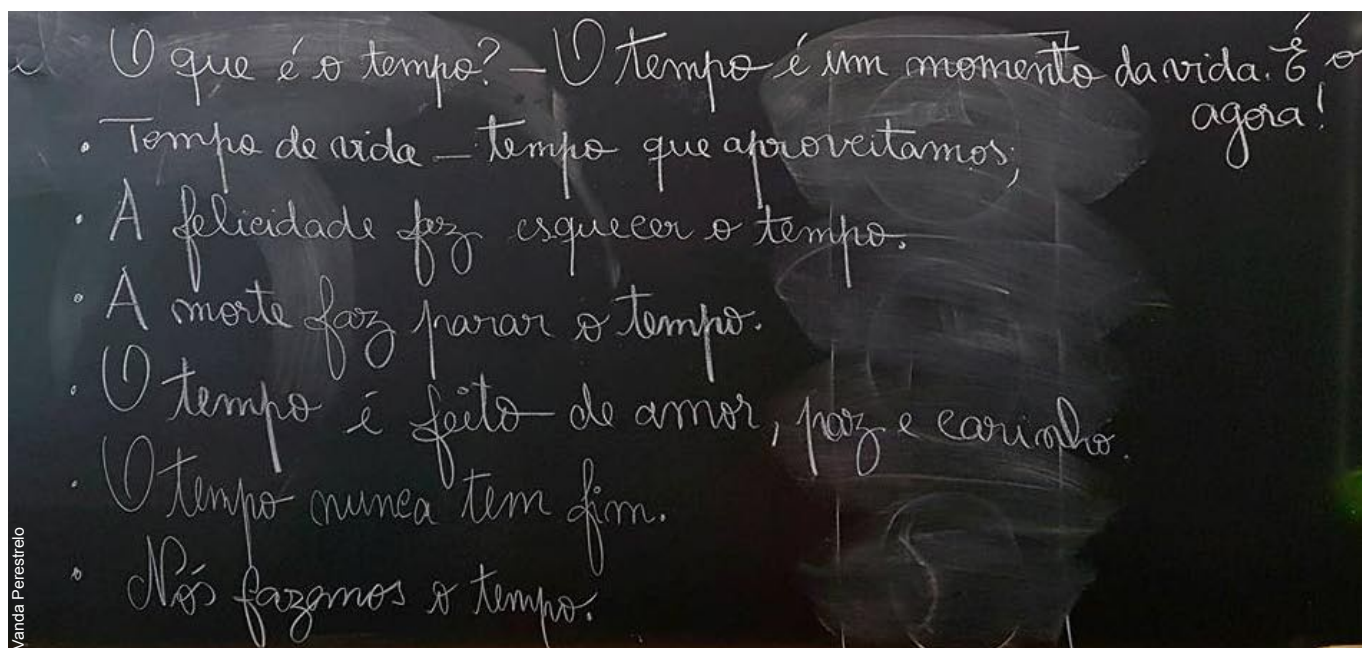 O que é o tempo? – O tempo é um momento da vida. É o
agora!
• Tempo de vida – tempo que aproveitamos;
• A felicidade fez esquecer o tempo.
• A morte faz parar o tempo.
• O tempo é feito de amor, paz e carinho.
• O tempo nunca tem fim.
• Nós fazemos o tempo.
Vanda Perestrelo